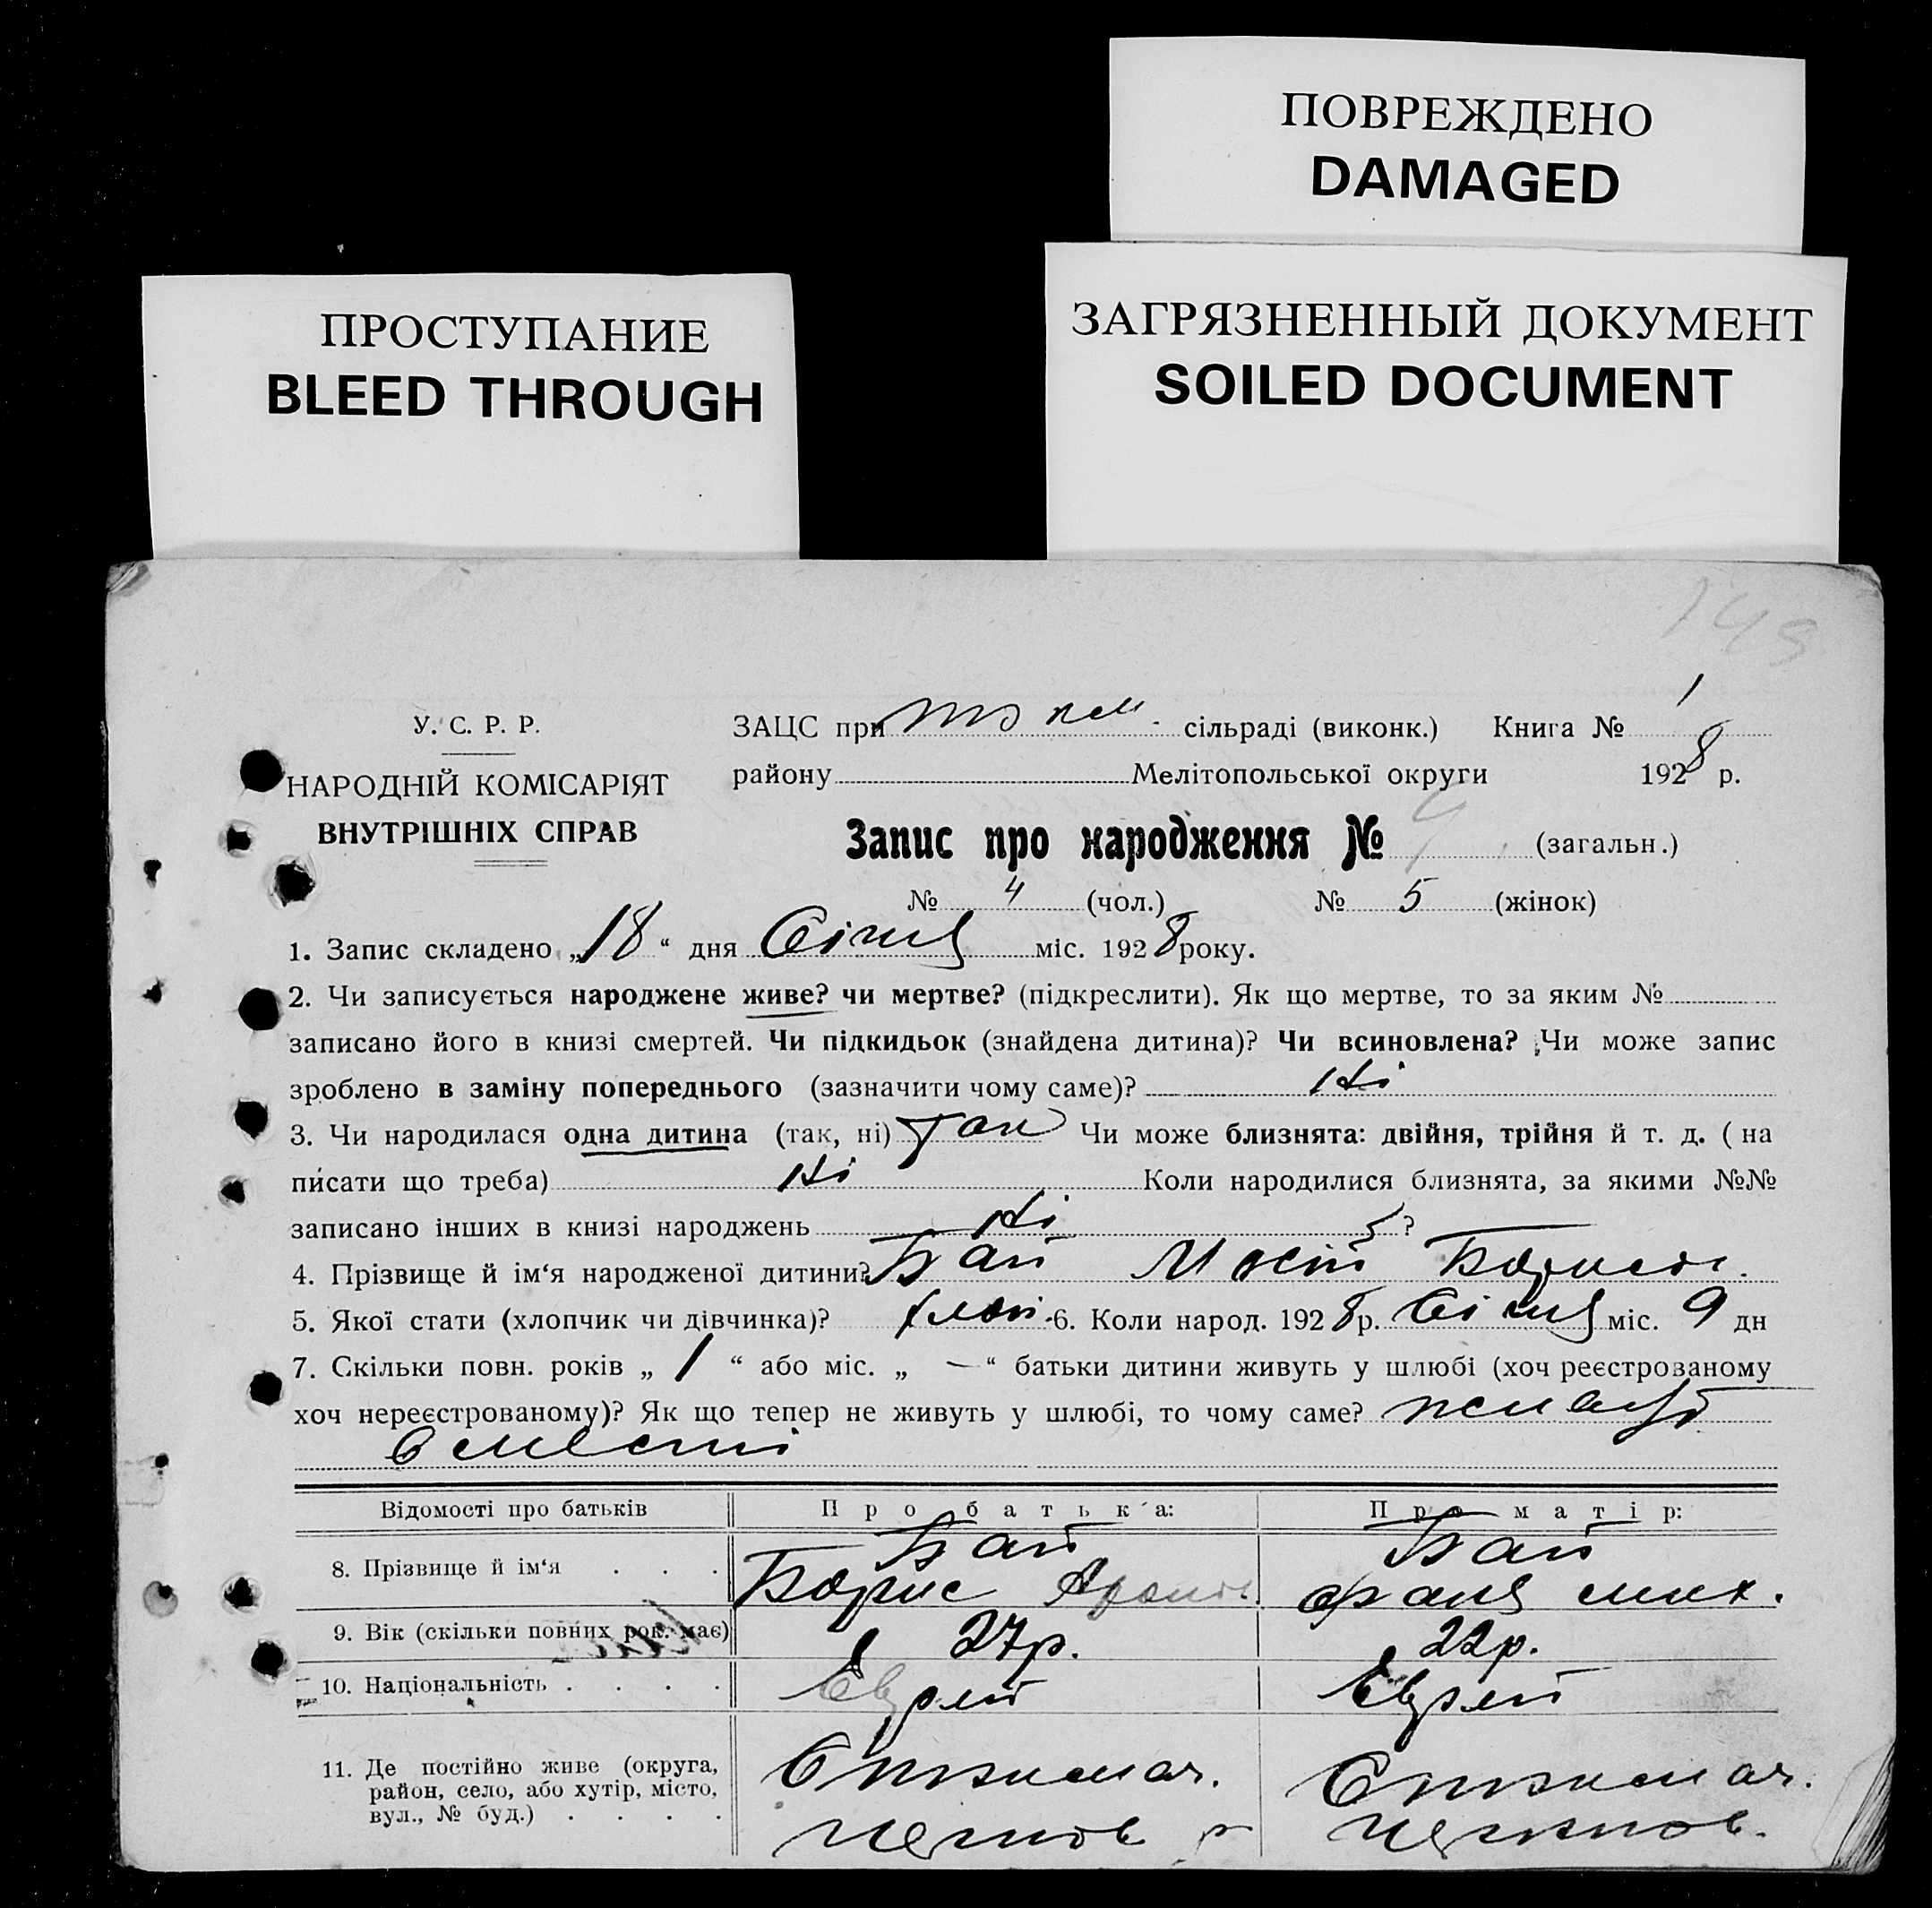 ПОВРЕЖДЕНО
DAMAGED
ПРОСТУПАНИЕ
BLEED THROUGH
ЗАГРЯЗНЕННЫЙ ДОКУМЕНТ
SOILED DOCUMENT
143
У. С. Р. Р.
НАРОДНІЙ КОМІСАРІЯТ
ВНУТРІШНІХ СПРАВ
ЗАЦС при сільраді (виконк.) Книга № 1
району Мелітопольської округи 1928 р.
Запис про народження № 9 (загальн.)
№ 4 (чол.) № 5 (жінок)
1. Запис складено „18“ дня Січня міс. 1928 року.
2. Чи записується народжене живе? чи мертве? (підкреслити). Як що мертве, то за яким №
записано його в книзі смертей. Чи підкидьок (знайдена дитина)? Чи всиновлена? Чи може запис
зроблено в заміну попереднього (зазначити чому саме)? Ні
3. Чи народилася одна дитина (так, ні) так Чи може близнята: двійня, трійня й т. д. (на
писати що треба) Ні Коли народилися близнята, за якими №№
записано інших в книзі народжень Ні ?
4. Прізвище й ім‘я народженої дитини? Бай Борисов.
5. Якої стати (хлопчик чи дівчинка)? хлоп. 6. Коли народ. 1928 р. Січня міс. 9 дн
7. Скільки повн. років „ 1 “ або міс. „ — “ батьки дитини живуть у шлюбі (хоч реєстрованому
хоч нереєстрованому)? Як що тепер не живуть у шлюбі, то чому саме?
Відомості про батьків Про батька: Про матір:
8. Прізвище й ім‘я . . . Бай Бай
Борис Фаня мих.
9. Вік (скільки повних рок. має) 27р. 22р.
10. Національність . . . . Еврей Еврей
11. Де постійно живе (округа,
район, село, або хутір, місто,
вул., № буд.) . . . .